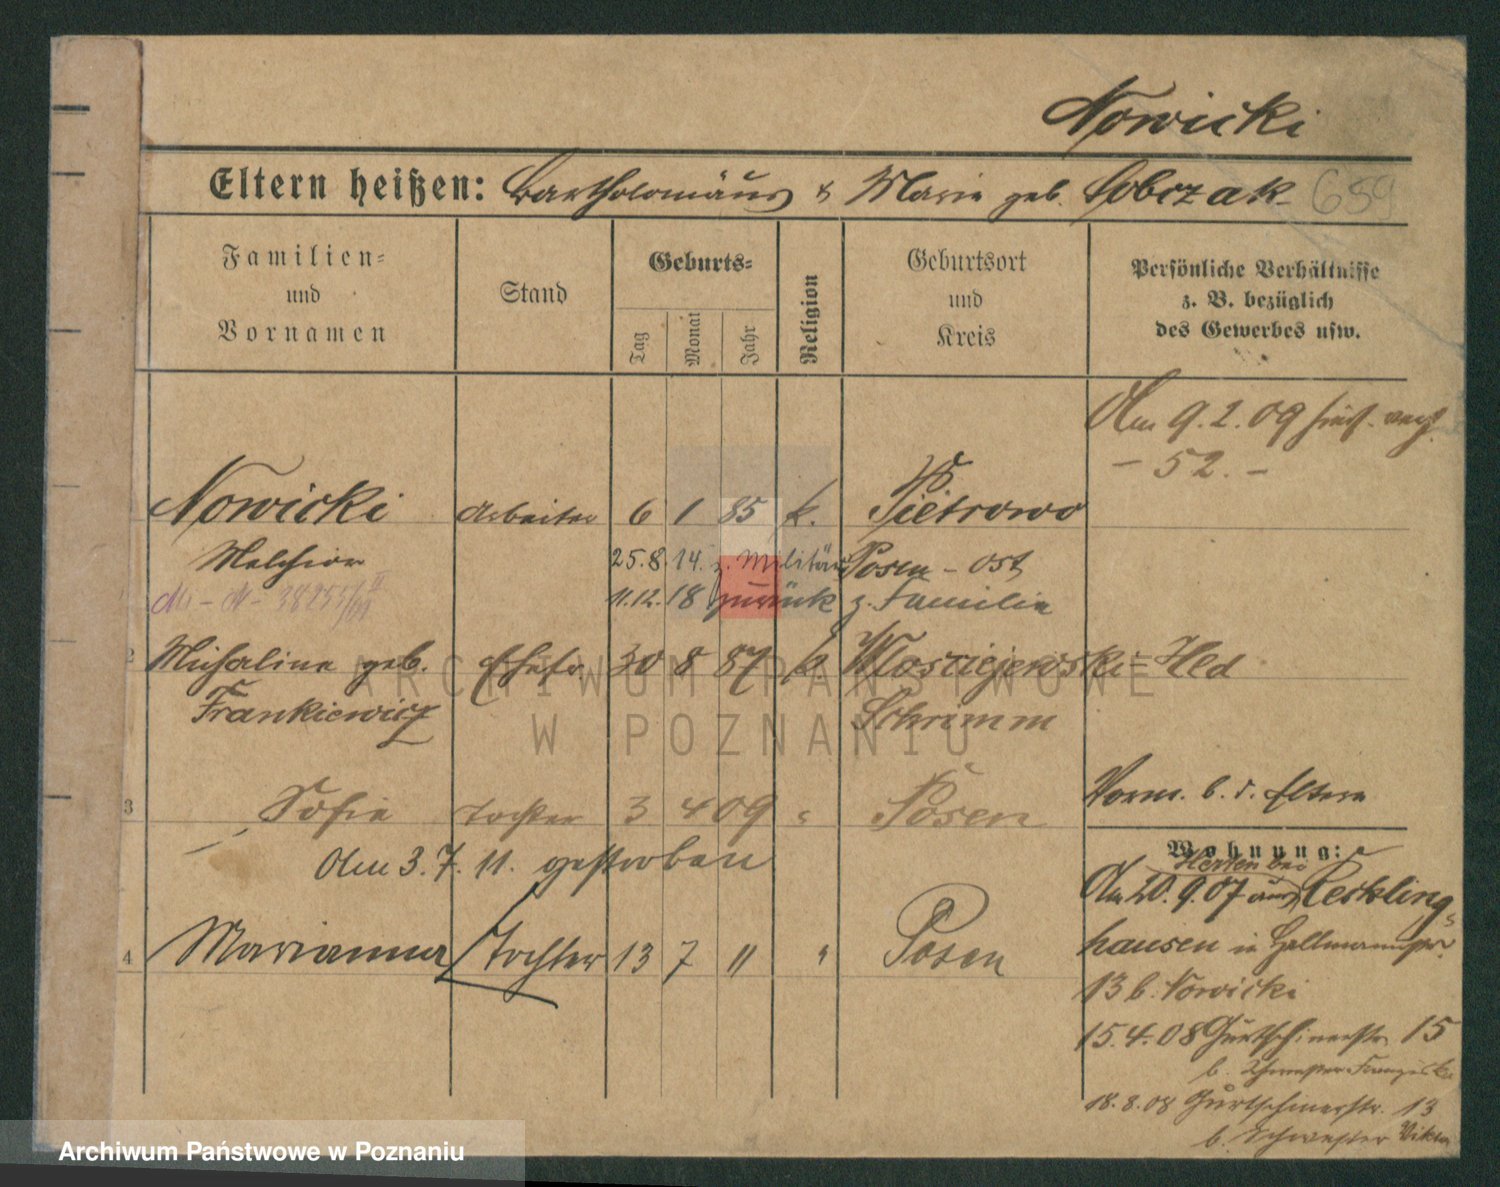 Nowicki
Eltern heißen: Bartholomäus & Marie geb. Sobczak
659
Familien-
und
Vornamen
Stand
Geburts-
Tag
Monat
Jahr
Religion
Geburtsort
und
Kreis
Persönliche Verhältnisse
z. B. bezüglich
des Gewerbes usw.
Am 9.2.09
- 52. -
1 Nowicki Arbeiter 6 1 85 k. Pietrowo
Melchior 25.8.14. z. Militär Posen - Ost
11.12.18 zurück z. Familie
2 Michaline geb. Ehefr. 30 8 87 k. Wlosciejewski - Hld
Frankiewicz Schrimm
Vorm. b. d. Eltern
3 Sofie Tochter 3 4 09 " Posen
Am 3.7.11. gestorben
Wohnung:
Herten bei
Am 20.9.07 aus Reckling-
4 Marianna Tochter 13 7 11 " Posen
hausen in Hallmannstr.
13 b. Nowicki
15.4.08 Gurtschinerstr. 15
b. Schwester Franziska
18.8.08 Gurtschinerstr. 13
b. Schwester
ARCHIWUM PAŃSTWOWE
W POZNANIU
Archiwum Państwowe w Poznaniu